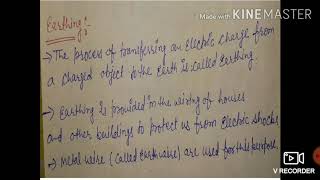 Made with KINEMASTER
Earthing:-
→ The process of transferring an Electric charge from
a charged object to the Earth is called Earthing.
→ Earthing is provided in the wiring of houses
and other buildings to protect us from Electric shocks
→ Metal wire (called Earth wire) are used for this purpose.
V RECORDER